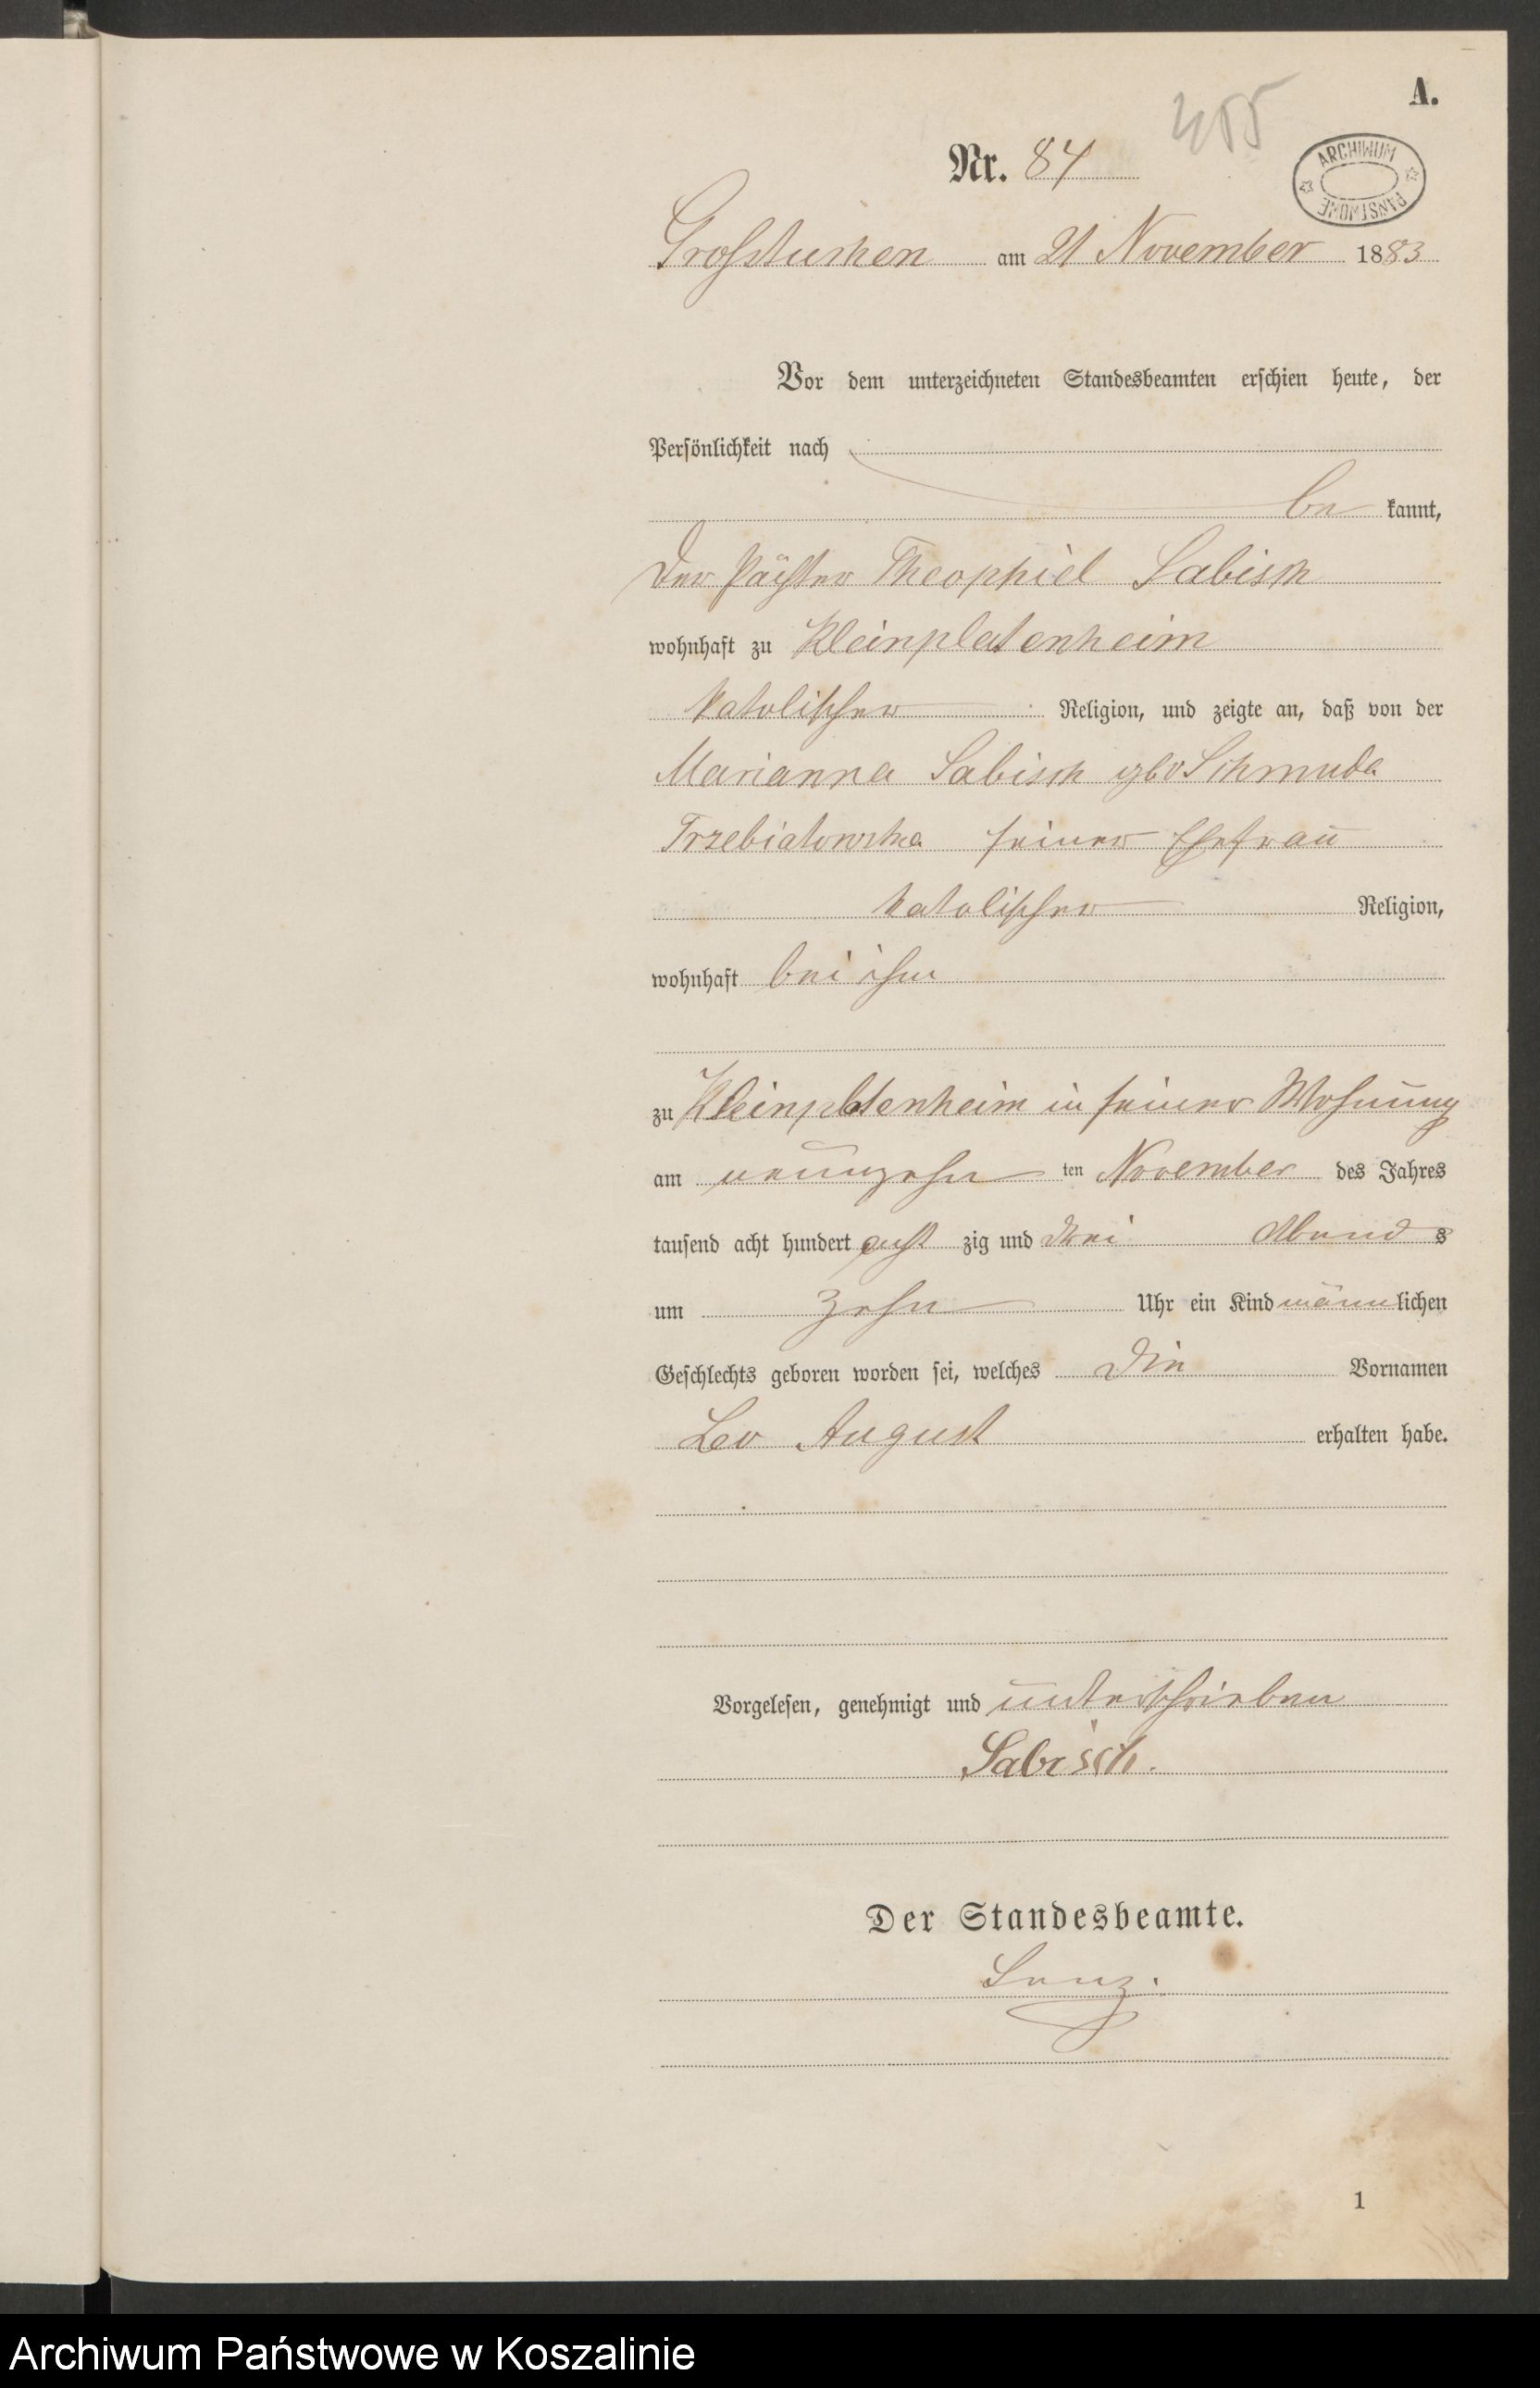 A.
455
Nr. 84
ARCHIWUM PAŃSTWOWE
Grosstuchen am 21 November 1883
Vor dem unterzeichneten Standesbeamten erschien heute, der
Persönlichkeit nach
be kannt,
der Pächter Theophiel Sabisch
wohnhaft zu Kleinplatenheim
katolischer Religion, und zeigte an, daß von der
Marianna Sabisch geb v Schmuda
Trzebiatowska seiner Ehefrau
katolischer Religion,
wohnhaft bei ihm
zu Kleinplatenheim in seiner Wohnung
am neunzehn ten November des Jahres
tausend acht hundert acht zig und drei Abend s
um zehn Uhr ein Kind männlichen
Geschlechts geboren worden sei, welches die Vornamen
Leo August erhalten habe.
Vorgelesen, genehmigt und unterschrieben
Sabisch.
Der Standesbeamte.
Lenz.
1
Archiwum Państwowe w Koszalinie